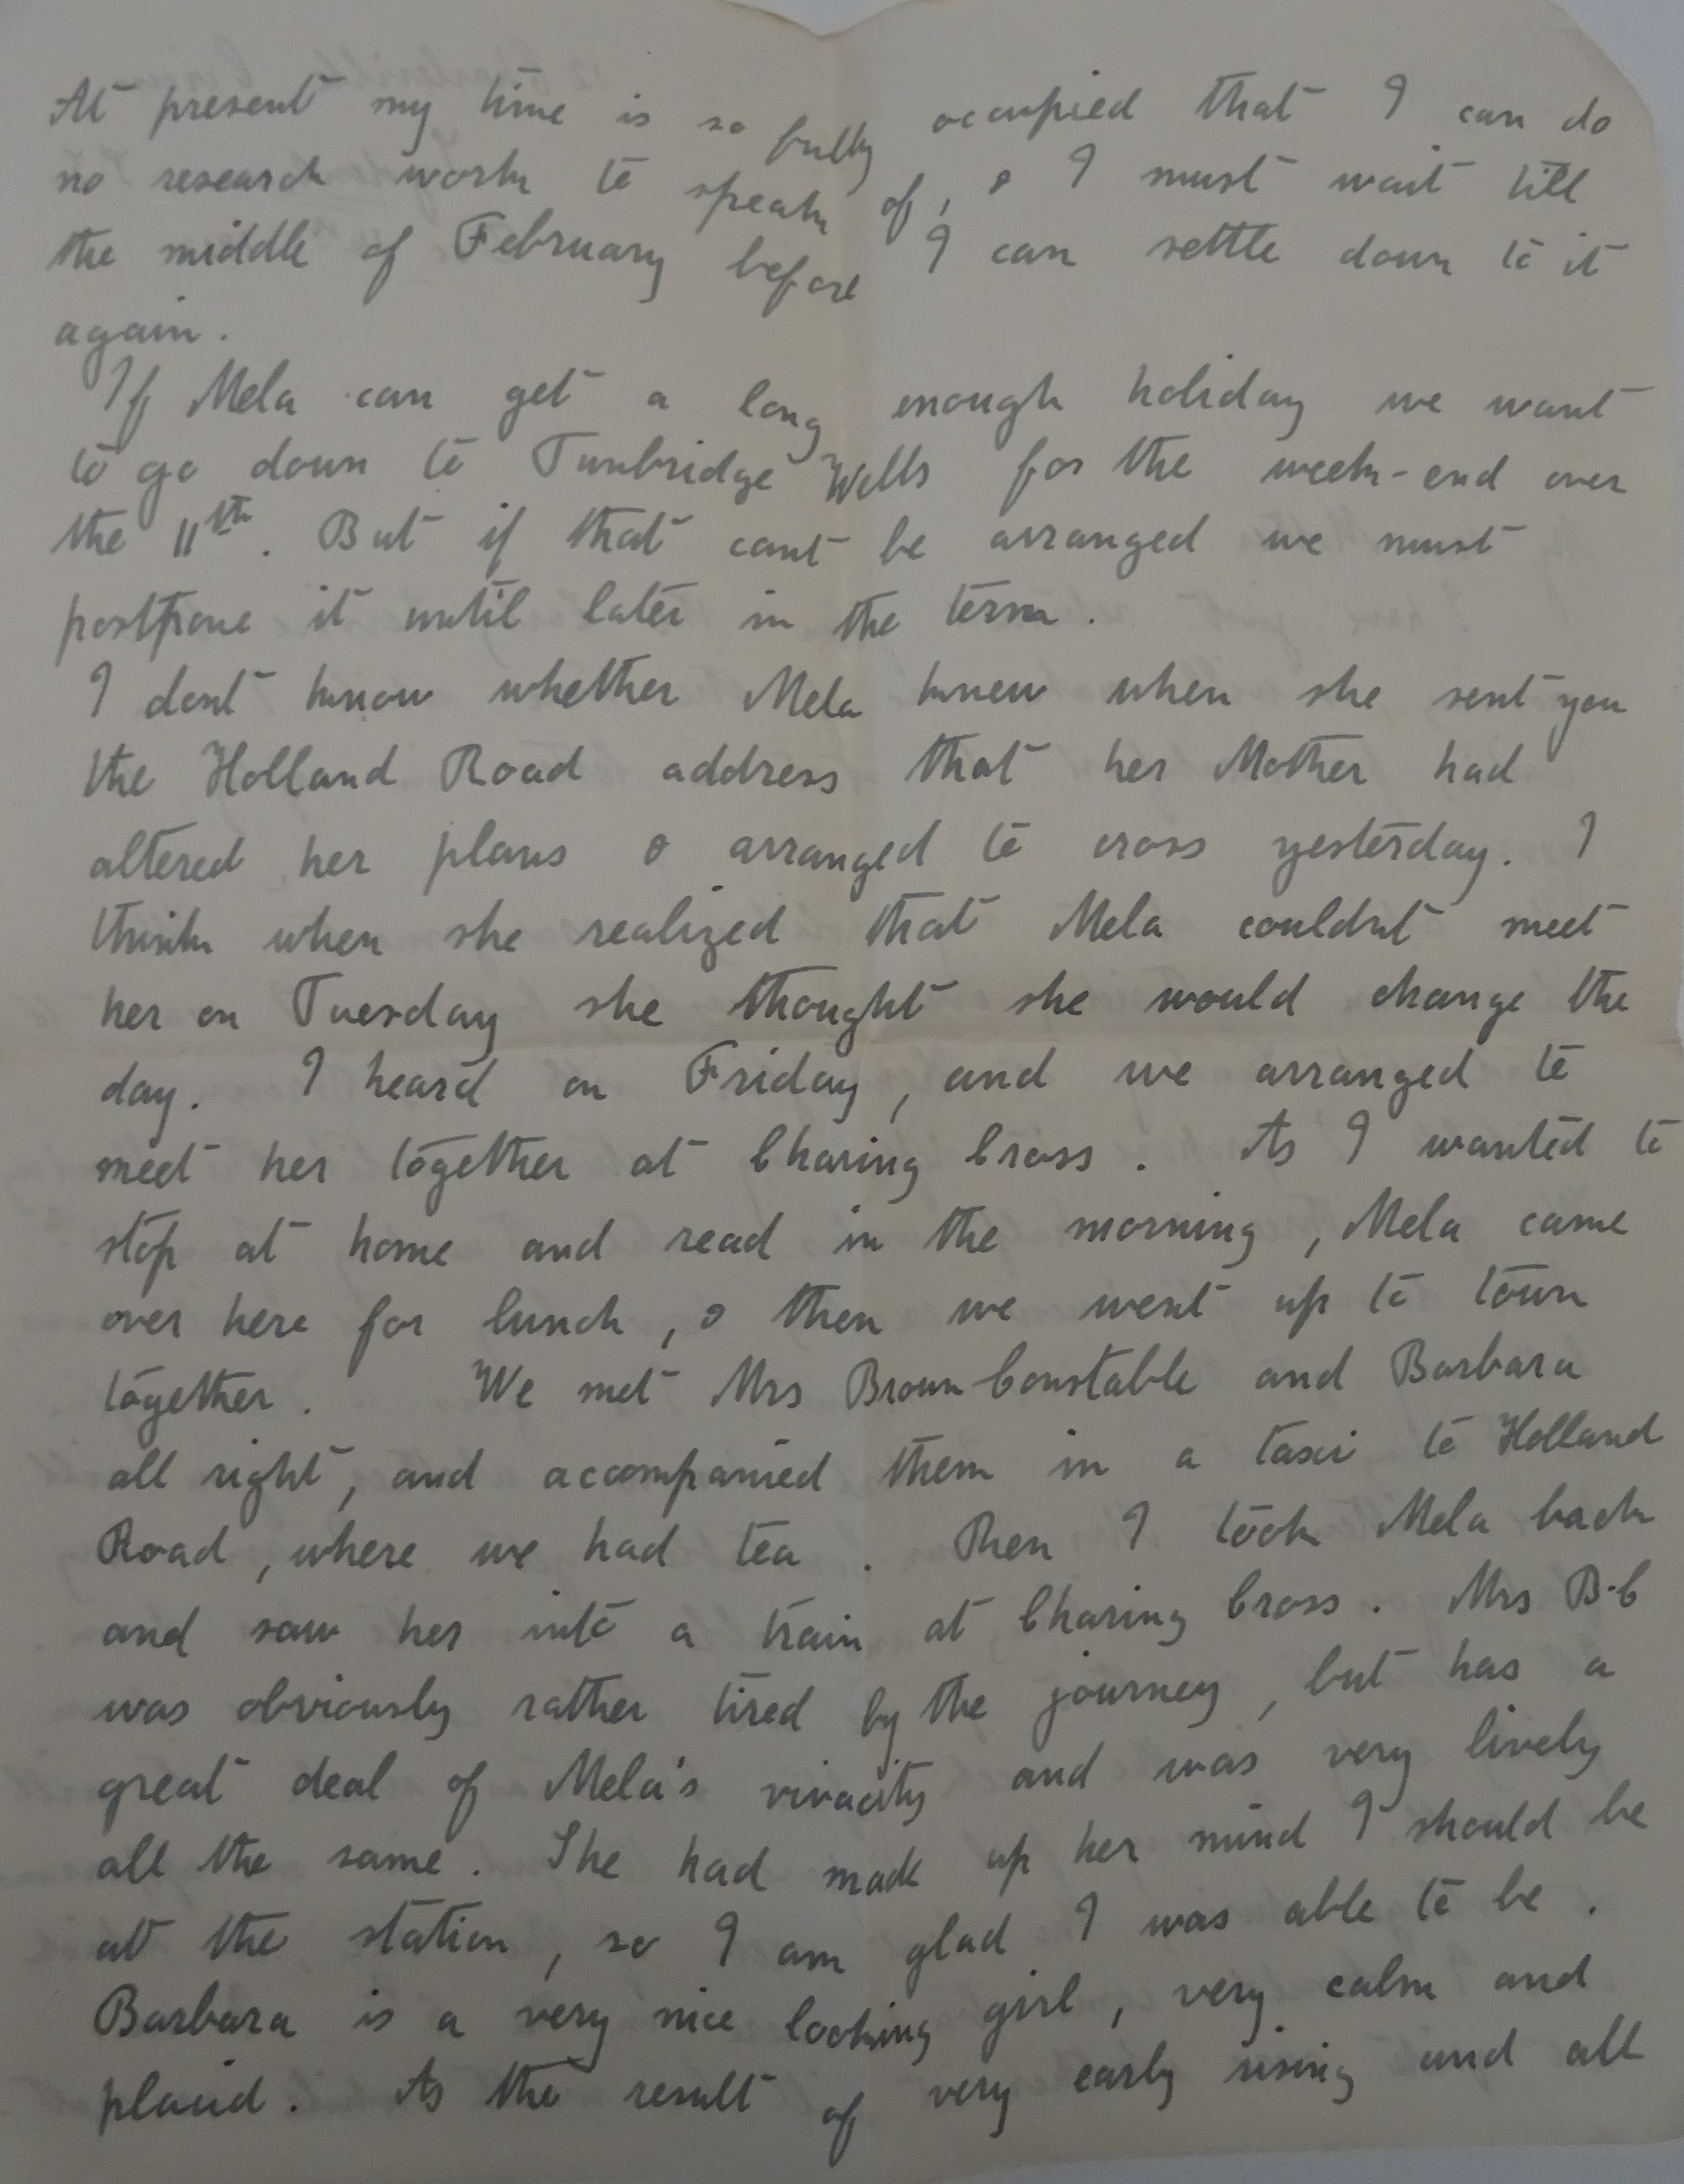 At present my time is so fully occupied that I can do
no research work to speak of, & I must wait till
the middle of February before I can settle down to it
again.
If Mela can get a long enough holiday we want
to go down to Tunbridge Wells for the week-end over
the 11th. But if that cant be arranged we must
postpone it until later in the term.
I dont know whether Mela knew when she sent you
the Holland Road address that her Mother had
altered her plans & arranged to cross yesterday. I
think when she realized that Mela couldnt meet
her on Tuesday she thought she would change the
day. I heard on Friday, and we arranged to
meet her together at Charing Cross. As I wanted to
stop at home and read in the morning, Mela came
over here for lunch, & then we went up to town
together. We met Mrs Brown Constable and Barbara
all right, and accompanied them in a taxi to Holland
Road, where we had tea. Then I took Mela back
and saw her into a train at Charing Cross. Mrs B-C
was obviously rather tired by the journey, but has a
great deal of Mela's vivacity and was very lively
all the same. She had made up her mind I should be
at the station, so I am glad I was able to be.
Barbara is a very nice looking girl, very calm and
placid. As the result of very early rising and all